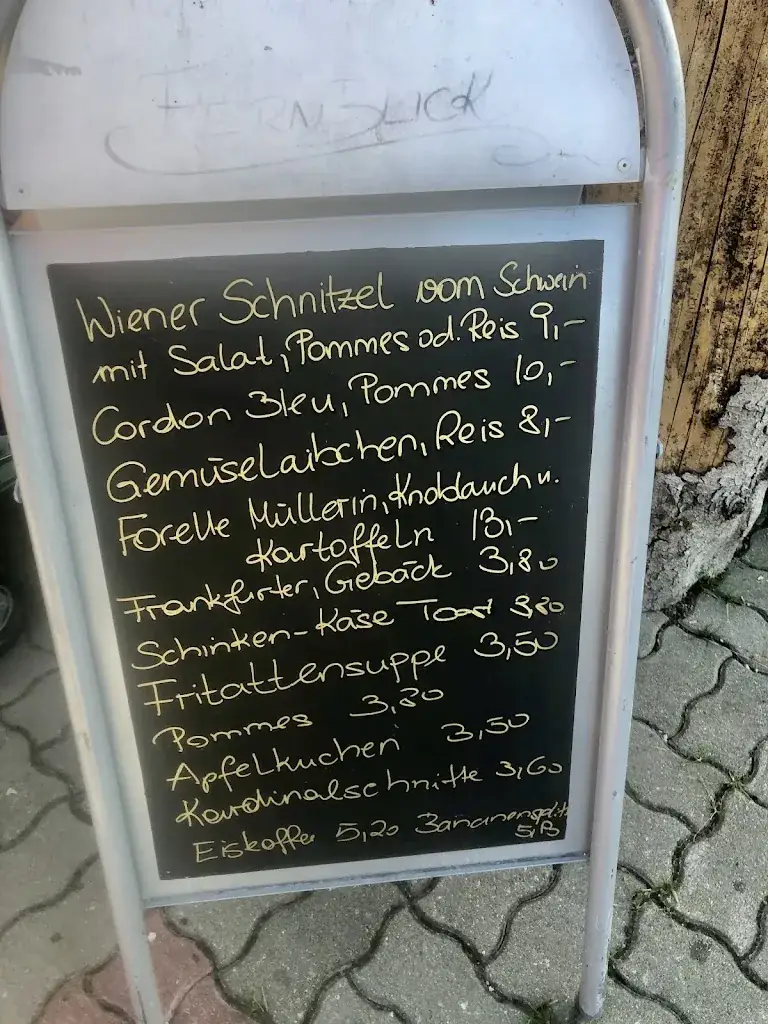 FERNBLICK
Wiener Schnitzel vom Schwein
mit Salat, Pommes od. Reis 9,-
Cordon Bleu, Pommes 10,-
Gemüselaibchen, Reis 8,-
Forelle Müllerin, Knoblauch u.
Kartoffeln 13,-
Frankfurter, Gebäck 3,80
Schinken-Käse Toast 3,80
Frittatensuppe 3,50
Pommes 3,80
Apfelkuchen 3,50
Kardinalschnitte 3,60
Eiskaffee 5,20 Bananensplit